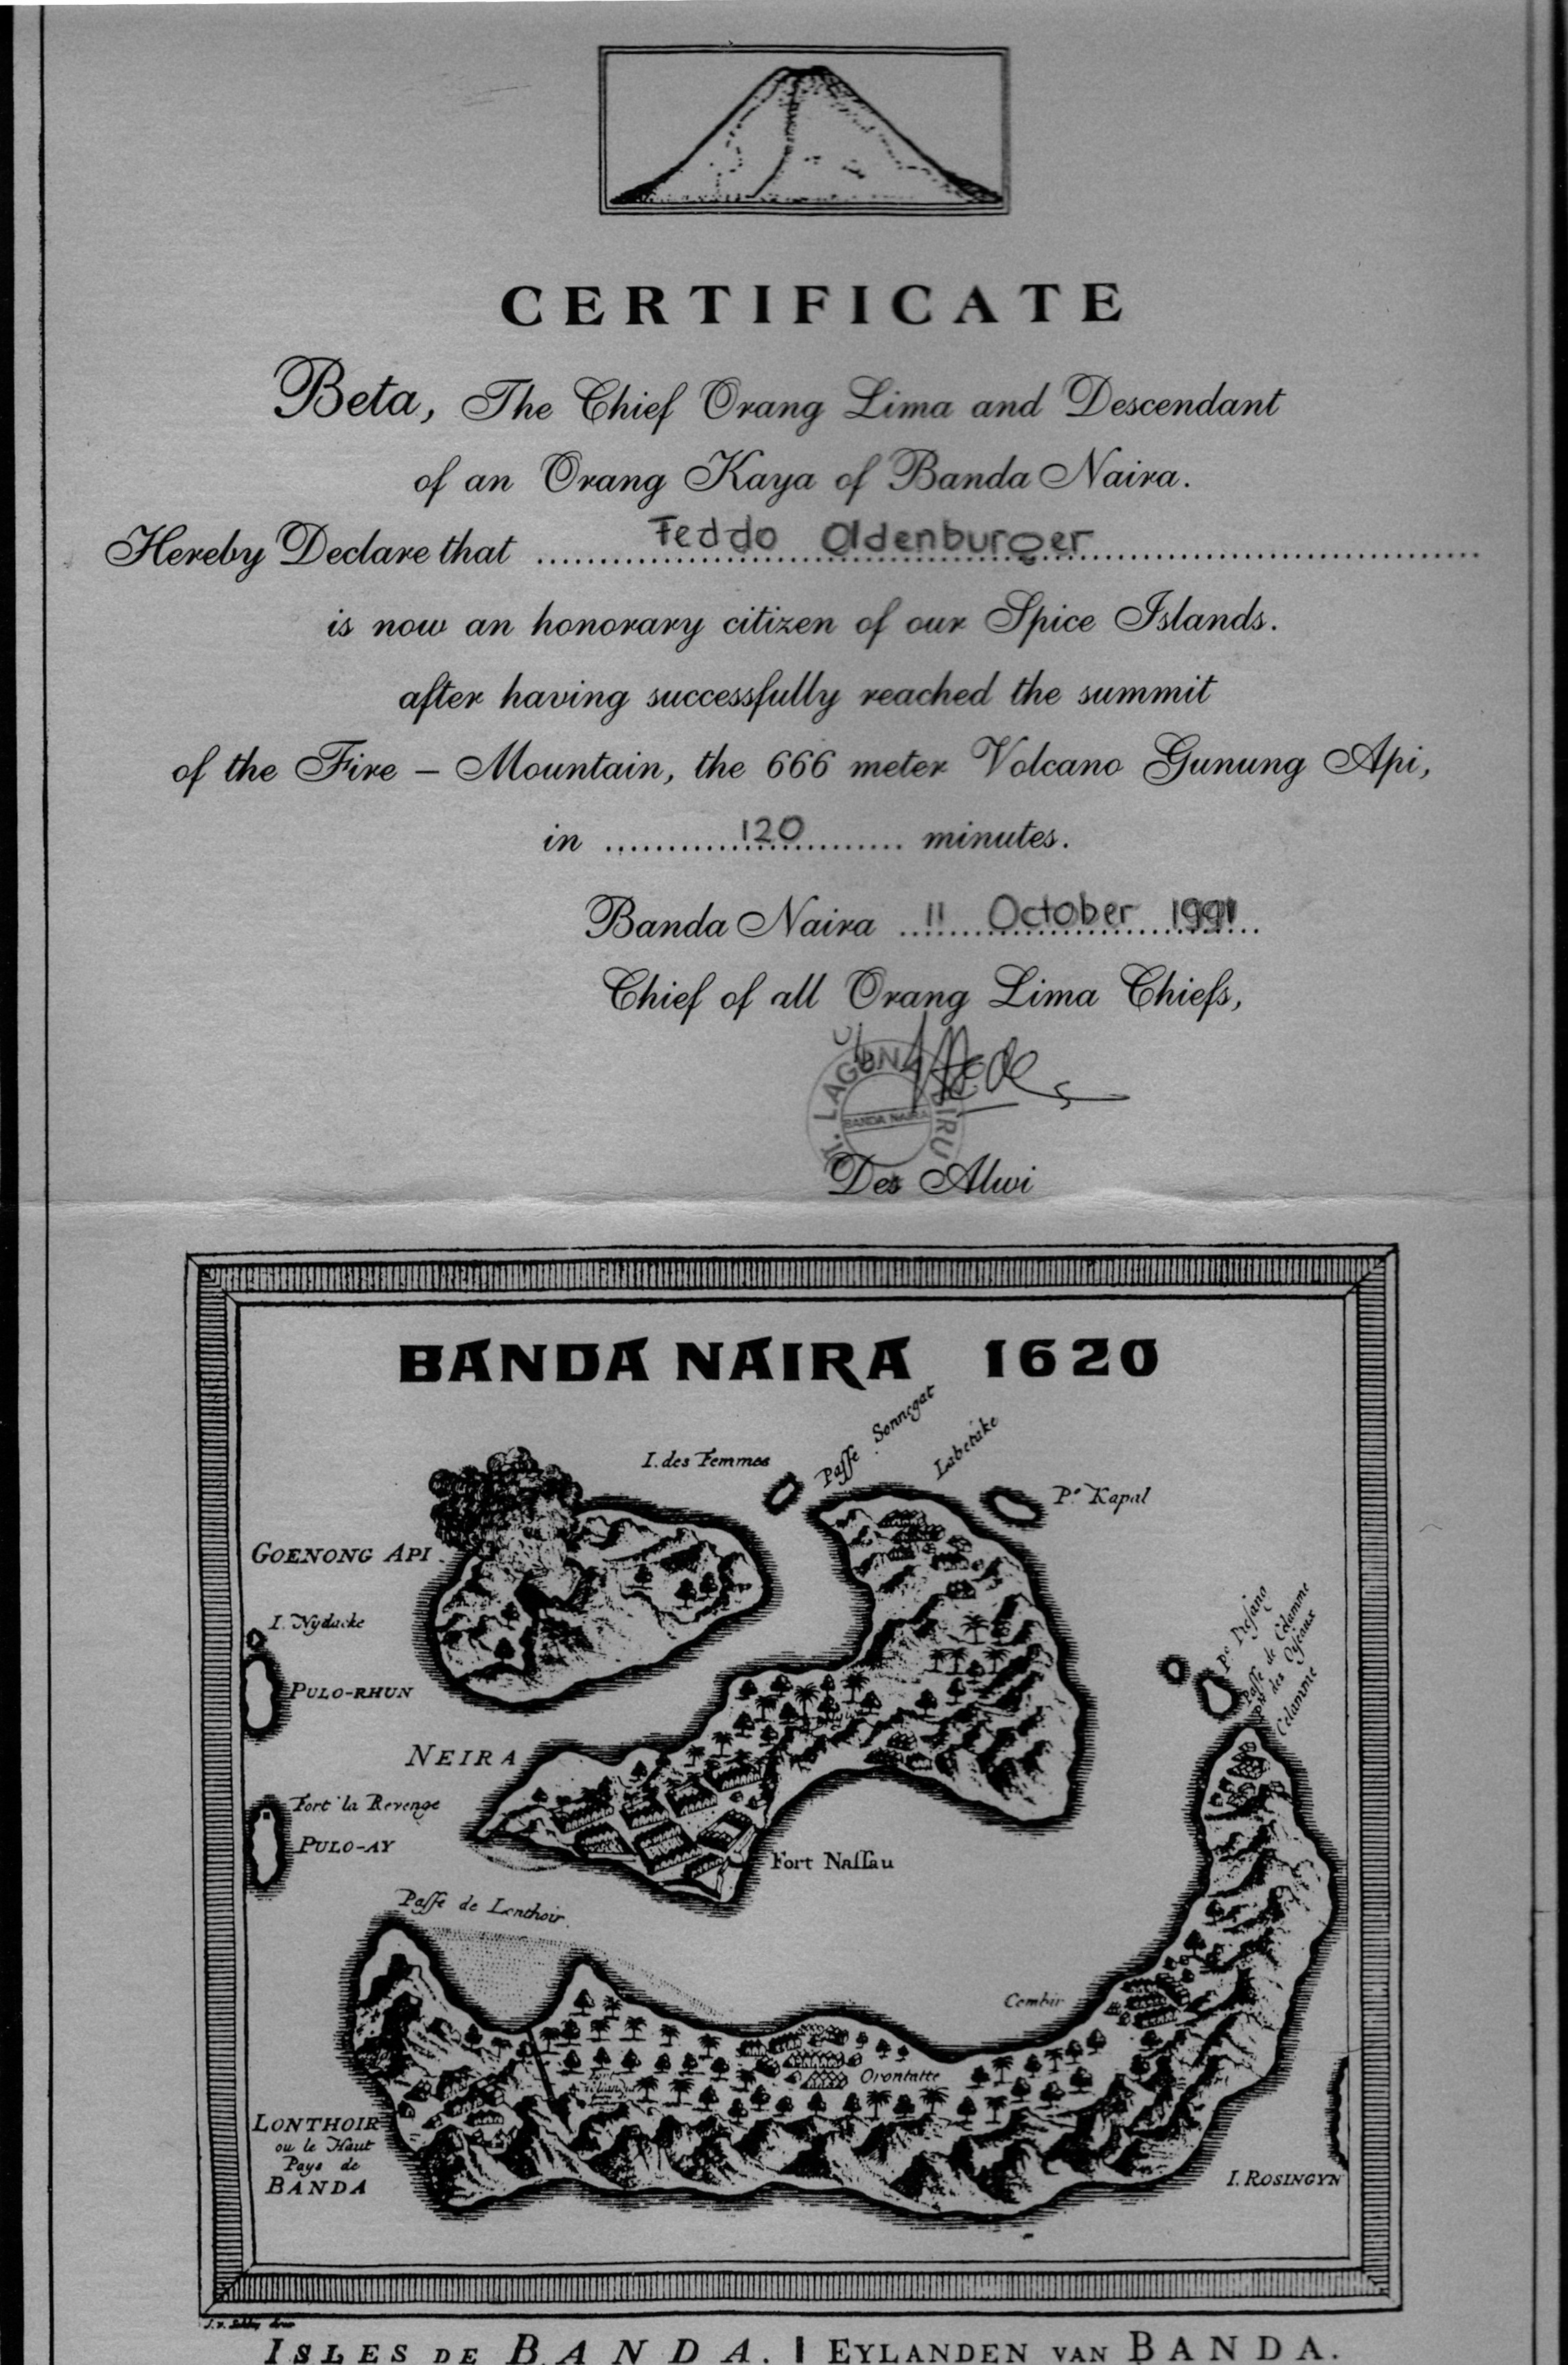 CERTIFICATE
Beta, The Chief Orang Lima and Descendant
of an Orang Kaya of Banda Naira.
Hereby Declare that Feddo Oldenburger
is now an honorary citizen of our Spice Islands.
after having successfully reached the summit
of the Fire – Mountain, the 666 meter Volcano Gunung Api,
in 120 minutes.
Banda Naira 11 October 1991
Chief of all Orang Lima Chiefs,
LAGUNA BIRU
BANDA NAIRA
Des Alwi
BANDA NAIRA 1620
I. des Femmes
Passe Sonnegat
Labetake
P.o Kapal
GOENONG API.
I. Nydacke
PULO-RHUN
NEIRA
Fort la Revenge
PULO-AY
Fort Nassau
Passe de Lonthoir.
P.o Pisang
Passe de Celamme
des Oyseaux
Celamme
Combir
Orontatte
LONTHOIR
ou le Haut
Pays de
BANDA
I. ROSINGYN
ISLES DE BANDA. | EYLANDEN VAN BANDA.